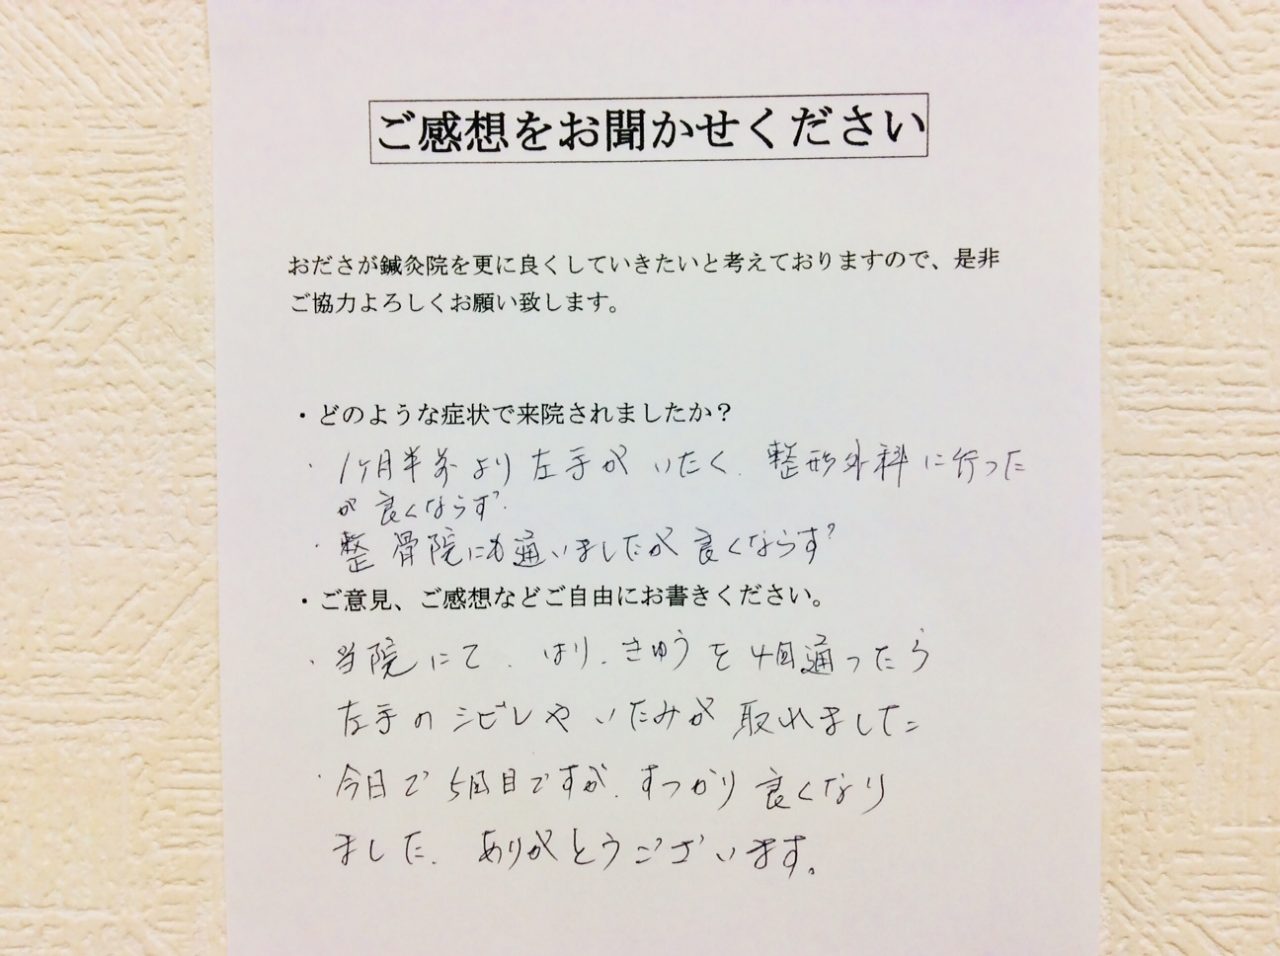 ご感想をお聞かせください
おださが鍼灸院を更に良くしていきたいと考えておりますので、是非
ご協力よろしくお願い致します。
・どのような症状で来院されましたか？
・1ヶ月半前より左手がいたく、整形外科に行った
が良くならず、
・整骨院にも通いましたが良くならず
・ご意見、ご感想などご自由にお書きください。
・当院にて、はり、きゅうを4回通ったら
左手のシビレやいたみが取れました
・今日で5回目ですが、すっかり良くなり
ました、ありがとうございます。